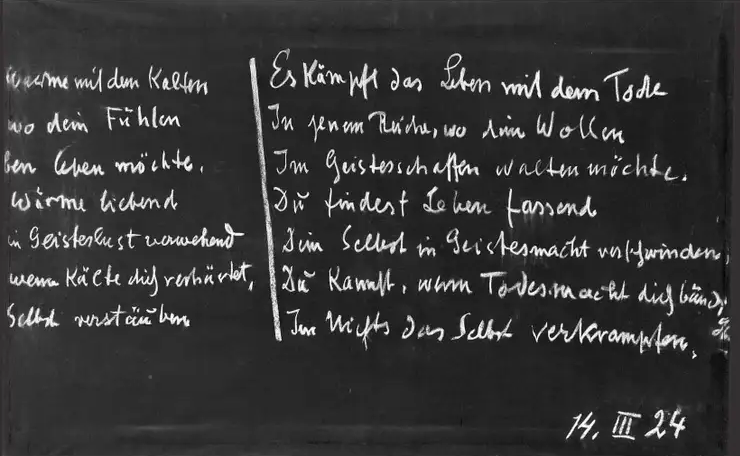 Warme mit dem Kalten
wo dein Fühlen
ben leben möchte.
Wärme liebend
in Geisteslust verwehend
wenn Kälte dich verhärtet,
Selbst verstäuben
Es Kämpft das Leben mit dem Tode
In jenem Reiche, wo dein Wollen
Im Geistesschaffen walten möchte.
Du findest Leben fassend
Dein Selbst in Geistesmacht verschwinden;
Du Kannst, wenn Todesmacht dich
Im Nichts das Selbst verkrampfen.
14. III 24